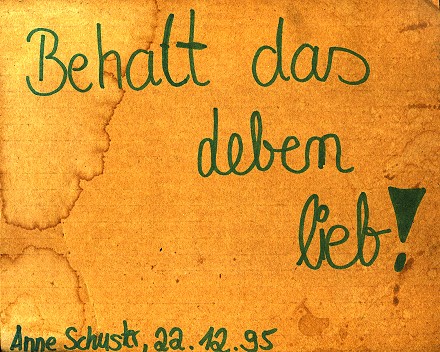 Behalt das
deben
lieb!
Anne Schustr, 22.12.95